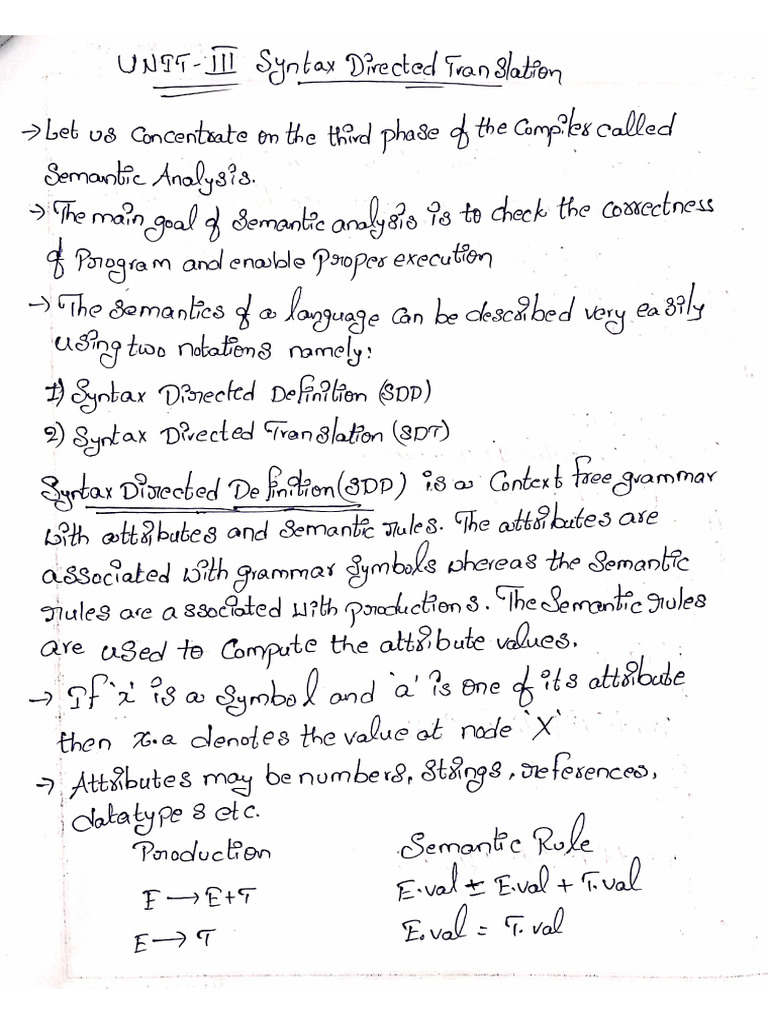 UNIT-III Syntax Directed Translation
→ Let us Concentrate on the third phase of the Compiler called
Semantic Analysis.
→ The main goal of semantic analysis is to check the correctness
of Program and enable Proper execution
→ The semantics of a language can be described very easily
using two notations namely:
1) Syntax Directed Definition (SDD)
2) Syntax Directed Translation (SDT)
Syntax Directed Definition (SDD) is a Context free grammar
with attributes and semantic rules. The attributes are
associated with grammar symbols whereas the semantic
rules are associated with productions. The semantic rules
are used to compute the attribute values.
→ If 'x' is a symbol and 'a' is one of its attribute
then x.a denotes the value at node 'X'
→ Attributes may be numbers, strings, references,
datatypes etc.
Production Semantic Rule
E → E+T E.val = E.val + T.val
E → T E.val = T.val